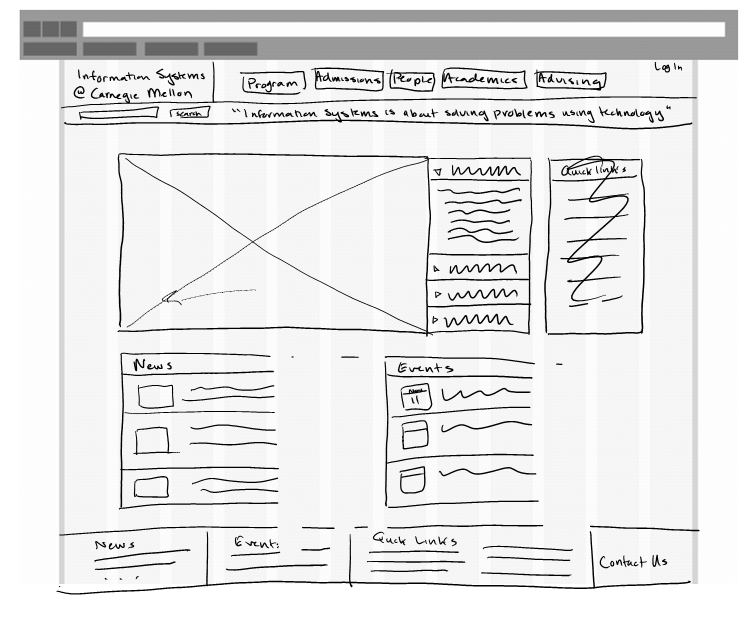 Log In
Information Systems
@ Carnegie Mellon
Program Admissions People Academics Advising
search "Information Systems is about solving problems using technology"
Quick links
News
Events
Nov
11
News Event: Quck Links
Contact Us